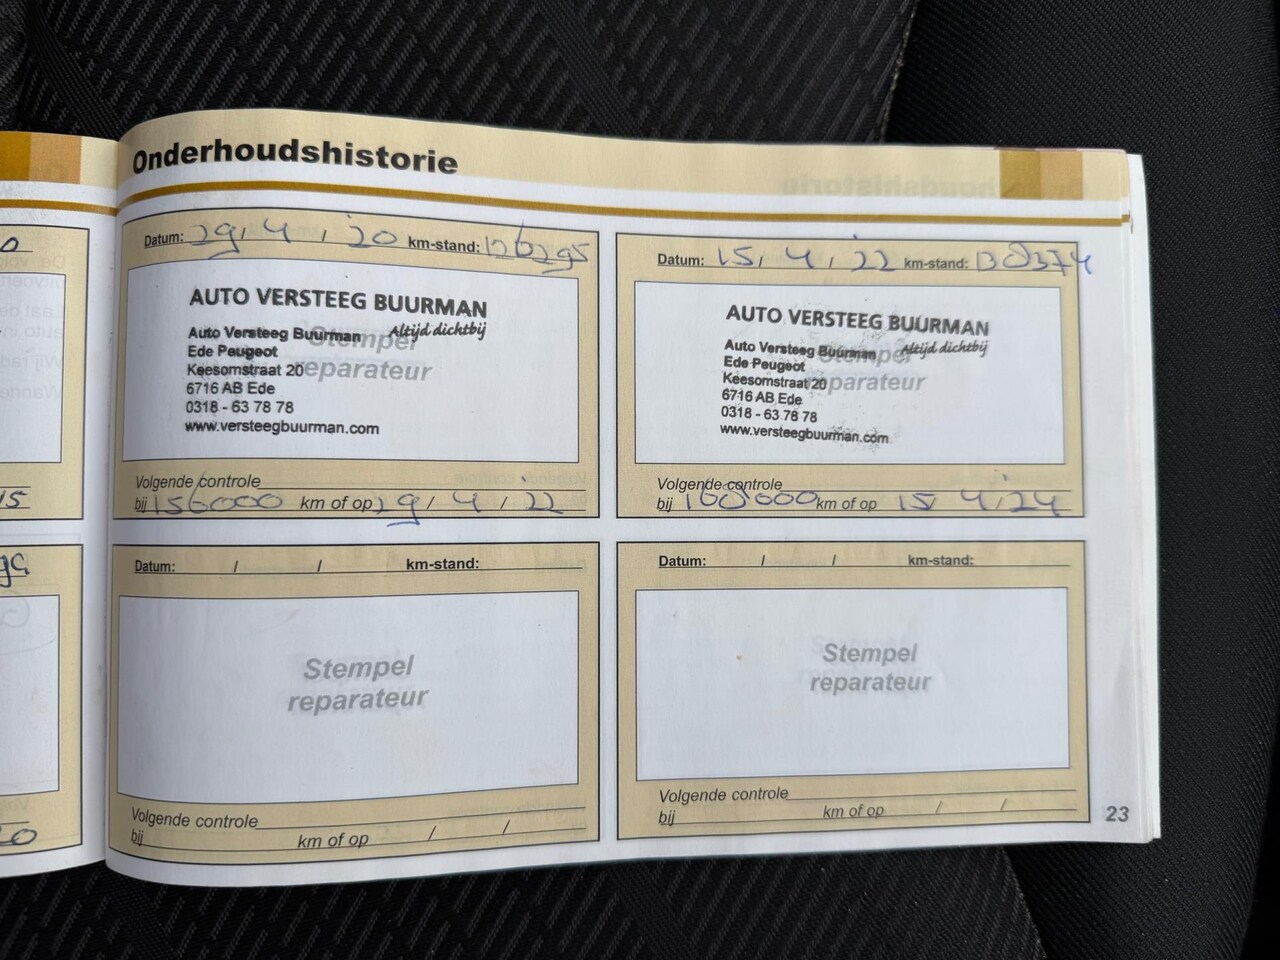 Onderhoudshistorie
0
Datum: 29/ 4 / '20 km-stand: 126295
AUTO VERSTEEG BUURMAN
Altijd dichtbij
Auto Versteeg Buurman
Ede Peugeot
Keesomstraat 20
6716 AB Ede
0318 - 63 78 78
www.versteegbuurman.com
Stempel
reparateur
Volgende controle
bij 156000 km of op 29 / 4 / '22
Datum: 15/ 4 / '22 km-stand: 138374
AUTO VERSTEEG BUURMAN
Altijd dichtbij
Auto Versteeg Buurman
Ede Peugeot
Keesomstraat 20
6716 AB Ede
0318 - 63 78 78
www.versteegbuurman.com
Stempel
reparateur
Volgende controle
bij 168000 km of op 15/ 4 /'24
15
Datum: / / km-stand:
Stempel
reparateur
Volgende controle
bij km of op / /
Datum: / / km-stand:
Stempel
reparateur
Volgende controle
bij km of op / /
20
23